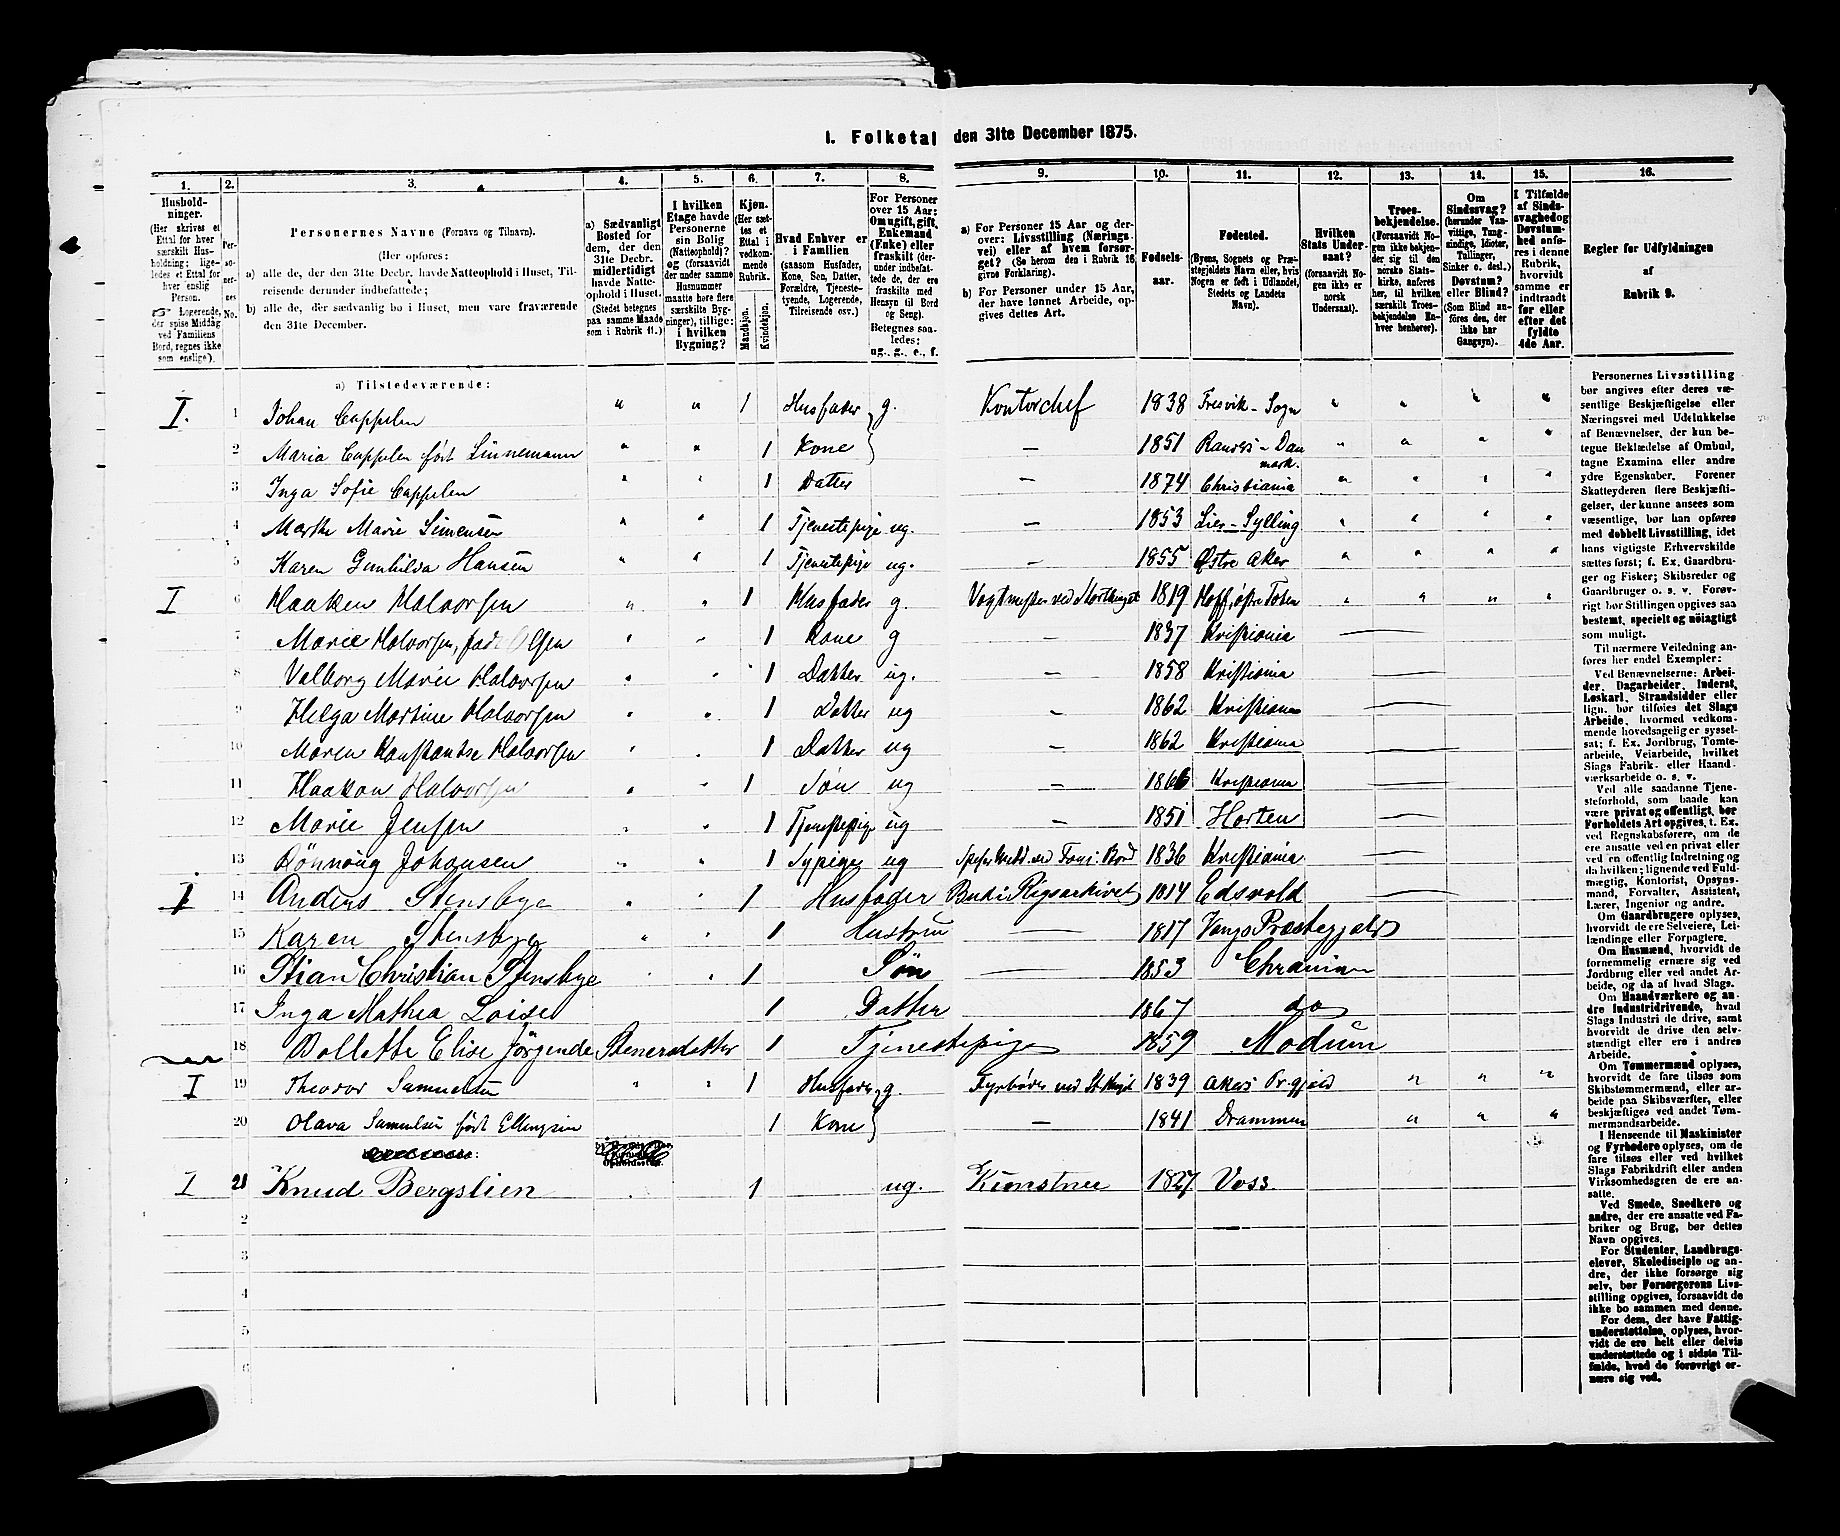 1. Folketal den 31te December 1875.
1. 2. 3. 4. 5. 6. 7. 8. 9. 10. 11. 12. 13. 14. 15. 16.
Husholdninger.
(Her skrives et Ettal for hver særskilt Husholdning; ligeledes et Ettal for hver enslig Person.
Logerende, der spise Middag ved Familiens Bord, regnes ikke som enslige).
Personernes No.
Personernes Navne (Fornavn og Tilnavn).
(Her opføres:
a) alle de, der den 31te Decbr. havde Natteophold i Huset, Tilreisende derunder indbefattede;
b) alle de, der sædvanlig bo i Huset, men vare fraværende den 31te December.
a) Sædvanligt Bosted for dem, der den 31te Decbr. midlertidigt havde Natteophold i Huset. (Stedet betegnes paa samme Maade som i Rubrik 11.)
I hvilken Etage havde Personerne sin Bolig (Natteophold)? og (forsaavidt der under samme Husnummer maatte høre flere særskilte Bygninger), tillige: i hvilken Bygning?
Kjøn.
(Her sættes et Ettal i vedkommende Rubrik.
Mandkjøn.
Kvindekjøn.
Hvad Enhver er i Familien
(saasom Husfader, Kone, Søn, Datter, Forældre, Tjenestetyende, Logerende, Tilreisende osv.)
For Personer over 15 Aar: Omugift, gift, Enkemand (Enke) eller fraskilt (derunder indbefattede de, der ere fraskilte med Hensyn til Bord og Seng). Betegnes saaledes: ug., g., e., f.
a) For Personer 15 Aar og derover: Livsstilling (Næringsvei) eller af hvem forsørget? (Se herom den i Rubrik 16 givne Forklaring).
b) For Personer under 15 Aar, der have lønnet Arbeide, opgives dettes Art.
Fødselsaar.
Fødested.
(Byens, Sognets og Præstegjeldets Navn eller, hvis Nogen er født i Udlandet, Stedets og Landets Navn).
Hvilken Stats Undersaat?
(forsaavidt Nogen ikke er norsk Undersaat).
Troesbekjendelse.
(Forsaavidt Nogen ikke bekjender sig til den norske Statskirke, anføres her, til hvilken særskilt Troesbekjendelse Enhver henhører).
Om Sindssvag? (herunder Vanvittige, Tungsindige, Idioter, Tullinger, Sinker o. desl.)
Døvstum? eller Blind? (Som Blind anføres den, der ikke har Gangsyn).
I Tilfælde af Sindssvaghed og Døvstumhed anføres i denne Rubrik, hvorvidt samme er indtraadt før eller efter det fyldte 4de Aar.
Regler for Udfyldningen
af
Rubrik 9.
a) Tilstedeværende:
I. 1 Johan Cappelen " " 1 Husfader g. Kontorchef 1838 Fresvik - Sogn " " " "
2 Maria Cappelen født Linnemann " " 1 Kone — 1851 Randers - Danmark. " " " "
3 Inga Sofie Cappelen " " 1 Datter — 1874 Christiania " " " "
4 Marthe Marie Simensen " " 1 Tjenestepige ug. — 1853 Lier - Sylling " " " "
5 Karen Gunhilda Hansen " " 1 Tjenestepige ug. — 1855 Østre Aker " " " "
I 6 Haaken Halvorsen " " 1 Husfader g. Vagtmester ved Storthinget 1819 Hoff, østre Toten " " " "
7 Marie Halvorsen, født Olsen " " 1 Kone g — 1837 Kristiania
8 Valborg Marie Halvorsen " 1 Datter ug. — 1858 Kristiania
9 Helga Martine Halvorsen " " 1 Datter ug — 1862 Kristiania
10 Maren Konstantse Halvorsen " " 1 Datter ug — 1862 Kristiania
11 Haakon Halvorsen " " 1 Søn ug — 1866 Kristiania
12 Marie Jensen " " 1 Tjenestepige ug — 1851 Horten
13 Dønnoug Johansen " " 1 Sypige ug 1836 Kristiania
I 14 Anders Stensbye " " 1 Husfader Bud i Rigsarkivet 1814 Edsvold
15 Karen Stensbye " " 1 Hustru — 1817 Vangs Præstegjeld
16 Stian Christian Stensbye " " 1 Søn — 1853 Chrania
17 Inga Mathea Loise 1 Datter 1867 do
18 Bollette Elise Jørgende Stenersdatter 1 Tjenestepige 1859 Modum
I 19 Theodor Samuelsen " " 1 Husfader g. Fyrbøder ved St.thget 1839 Akers Prgjeld " " "
20 Olava Samuelsen født Ellingsen 1 Kone — 1841 Drammen " " "
I 21 Knud Bergslien 1 ug. Kunstner 1827 Voss
2
3
4
5
6
Personernes Livsstilling bør angives efter deres væsentlige Beskjæftigelse eller Næringsvei med Udelukkelse af Benævnelser, der kun betegne Beklædelse af Ombud, tagne Examina eller andre ydre Egenskaber. Forener Skatteyderen flere Beskjæftigelser, der kunne ansees som væsentlige, bør han opføres med dobbelt Livsstilling, idet hans vigtigste Erhvervskilde sættes først; f. Ex. Gaardbruger og Fisker; Skibsreder og Gaardbruger o. s. v. Forøvrigt bør Stillingen opgives saa bestemt, specielt og nöiagtigt som muligt.
Til nærmere Veiledning anføres her endel Exempler:
Ved Benævnelserne: Arbeider, Dagarbeider, Inderst, Løskarl, Strandsidder eller lign. bør tilføies det Slags Arbeide, hvormed vedkommende hovedsagelig er sysselsat; f. Ex. Jordbrug, Tomtearbeide, Veiarbeide, hvilket Slags Fabrik- eller Haandværksarbeide o. s. v.
Ved alle saadanne Tjenesteforhold, som baade kan være privat og offentligt, bør Forholdets Art opgives, t. Ex. ved Regnskabsførere, om de ere ansatte ved en privat eller ved en offentlig Indretning og da hvilken; lignende ved Fuldmægtig, Kontorist, Opsynsmand, Forvalter, Assistent, Lærer, Ingeniør og andre.
Om Gaardbrugere oplyses, hvorvidt de ere Selveiere, Leilændinge eller Forpagtere.
Om Husmænd, hvorvidt de fornemmelig ernære sig ved Jordbrug eller ved andet Arbeide, og da af hvad Slags.
Om Haandværkere og andre Industridrivende, hvad Slags Industri de drive, samt hvorvidt de drive den selvstændigt eller ere i andres Arbeide.
Om Tømmermænd oplyses, hvorvidt de fare tilsøs som Skibstømmermænd, eller arbeide paa Skibsværfter, eller beskjæftiges ved andet Tømmermandsarbeide.
I Henseende til Maskinister og Fyrbødere oplyses, om de fare tilsøs eller ved hvilket Slags Fabrikdrift eller anden Virksomhedsgren de ere ansatte.
Ved Smede, Snedkere og andre, der ere ansatte ved Fabriker og Brug, bør dettes Navn opgives.
For Studenter, Landbrugselever, Skoledisciple og andre, der ikke forsørge sig selv, bør Forsørgerens Livsstilling opgives, forsaavidt de ikke bo sammen med denne.
For dem, der have Fattigunderstøttelse, oplyses, hvorvidt de ere helt eller delvis understøttede og i sidste Tilfælde, hvad de forøvrigt ernære sig ved.